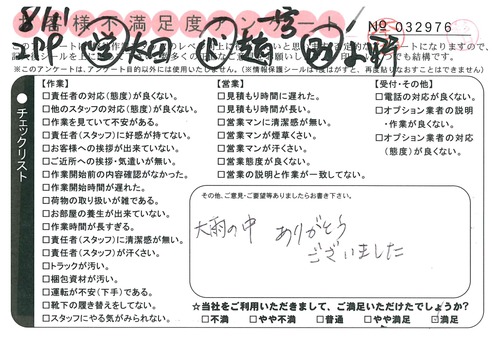 8/11
お客様不満足度アンケート
No 032976
※このアンケートは、アンケート目的以外には使用いたしません。(※情報保護シールは1度はがすと、再度貼りなおすことはできません)
チェックリスト
【作業】
□責任者の対応(態度)が良くない。
□他のスタッフの対応(態度)が良くない。
□作業を見ていて不安がある。
□責任者(スタッフ)に好感が持てない。
□お客様への挨拶が出来ていない。
□ご近所への挨拶・気遣いが無い。
□作業開始前の内容確認がなかった。
□作業開始時間が遅れた。
□荷物の取り扱いが雑である。
□お部屋の養生が出来ていない。
□作業時間が長すぎる。
□責任者(スタッフ)に清潔感が無い。
□責任者(スタッフ)が汗くさい。
□トラックが汚い。
□梱包資材が汚い。
□運転が不安(下手)である。
□靴下の履き替えをしてない。
□スタッフにやる気がみられない。
【営業】
□見積もり時間に遅れた。
□見積もり時間が長い。
□営業マンに清潔感が無い。
□営業マンが煙草くさい。
□営業マンが汗くさい。
□営業態度が良くない。
□営業の説明と作業が一致してない。
【受付・その他】
□電話の対応が良くない。
□オプション業者の説明
・作業が良くない。
□オプション業者の対応
(態度)が良くない。
その他、ご意見・ご要望等ありましたらお書き下さい。
大雨の中 ありがとう
ございました
☆当社をご利用いただきまして、ご満足いただけたでしょうか?
□不満 □やや不満 □普通 □やや満足 ☑満足